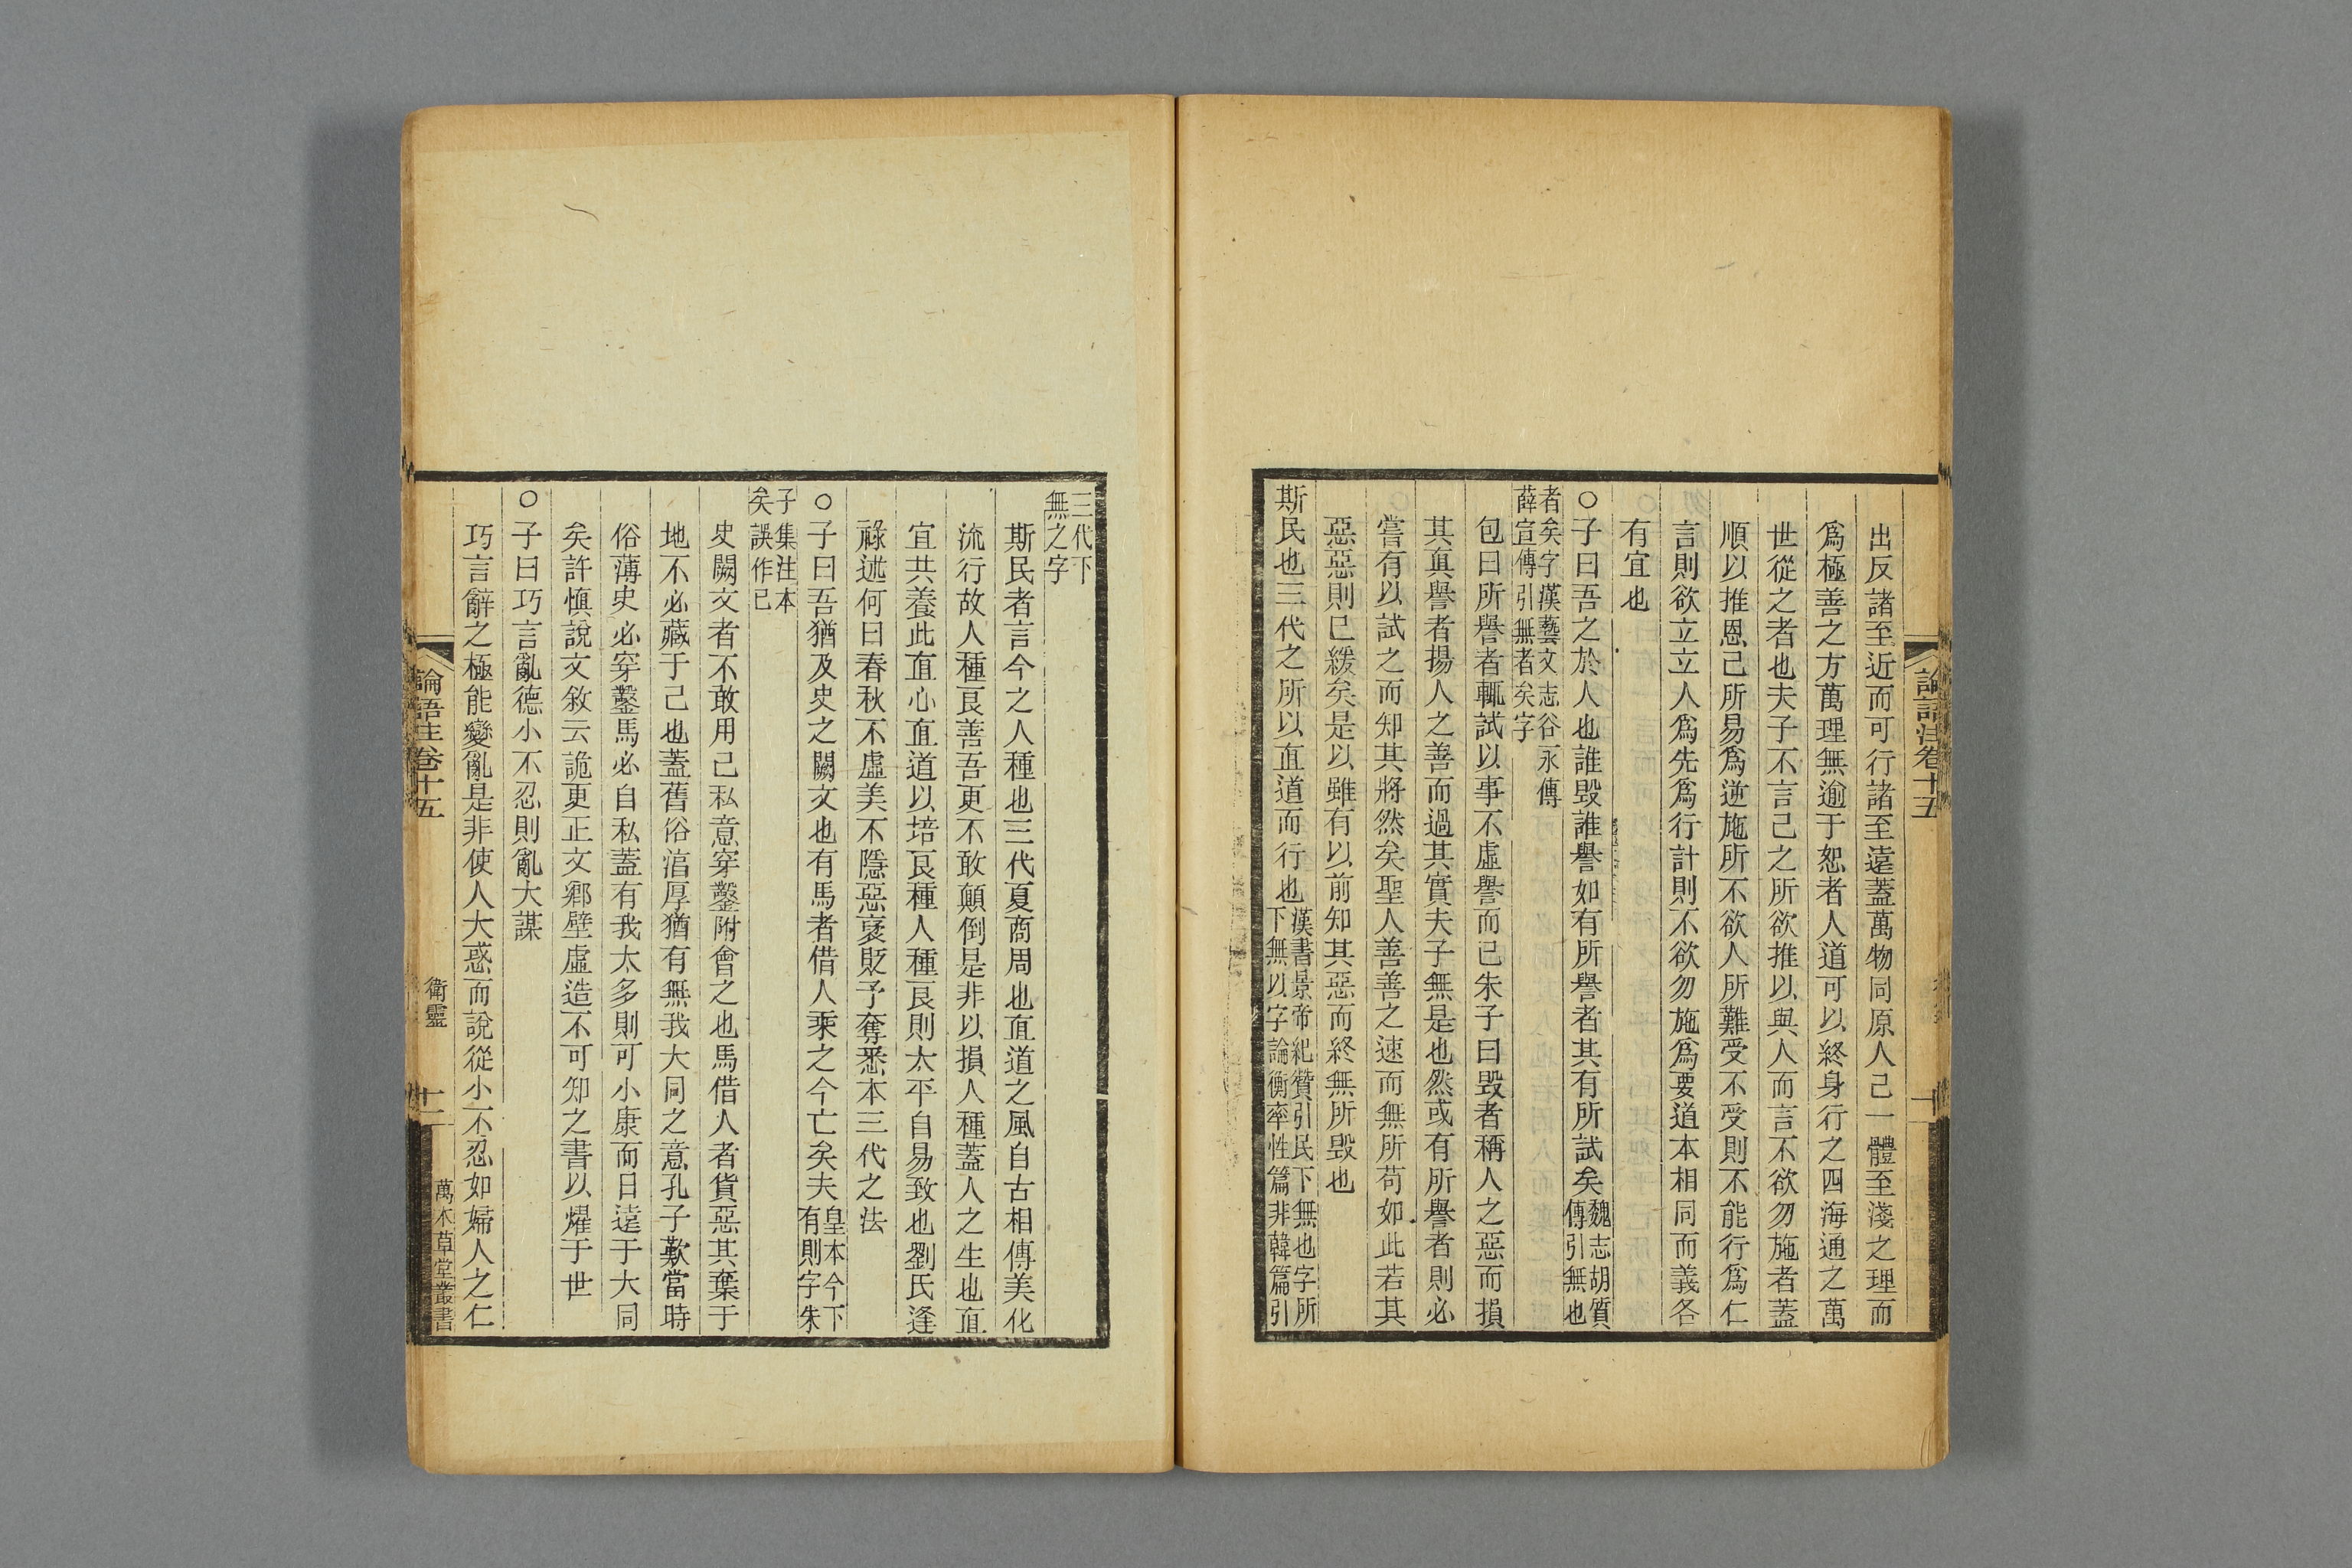 出反諸至近而可行諸至遠蓋萬物同原人己一體至淺之理而
爲極善之方萬理無逾于恕者人道可以終身行之四海通之萬
世從之者也夫子不言己之所欲推以與人而言不欲勿施者蓋
順以推恩己所易爲逆施所不欲人所難受不受則不能行爲仁
言則欲立立人爲先爲行計則不欲勿施爲要道本相同而義各
有宜也
○子曰吾之於人也誰毀誰譽如有所譽者其有所試矣魏志胡質傳引無也
者矣字漢藝文志谷永傳薛宣傳引無者矣字
包曰所譽者輒試以事不虛譽而已朱子曰毀者稱人之惡而損
其真譽者揚人之善而過其實夫子無是也然或有所譽者則必
嘗有以試之而知其將然矣聖人善善之速而無所苟如此若其
惡惡則已緩矣是以雖有以前知其惡而終無所毀也
斯民也三代之所以直道而行也漢書景帝紀贊引民下無也字所下無以字論衡率性篇非韓篇引
三代下無之字
斯民者言今之人種也三代夏商周也直道之風自古相傳美化
流行故人種良善吾更不敢顛倒是非以損人種蓋人之生也直
宜共養此直心直道以培良種人種良則太平自易致也劉氏逢
祿述何曰春秋不虛美不隱惡褒貶予奪悉本三代之法
○子曰吾猶及史之闕文也有馬者借人乘之今亡矣夫皇本今下有則字朱
子集注本矣誤作已
史闕文者不敢用己私意穿鑿附會之也馬借人者貨惡其棄于
地不必藏于己也蓋舊俗淳厚猶有無我大同之意孔子歎當時
俗薄史必穿鑿馬必自私蓋有我太多則可小康而日遠于大同
矣許慎說文敘云詭更正文鄉壁虛造不可知之書以燿于世
○子曰巧言亂德小不忍則亂大謀
巧言辭之極能變亂是非使人大惑而說從小不忍如婦人之仁
論語注卷十五
衛靈
十二
萬木草堂叢書